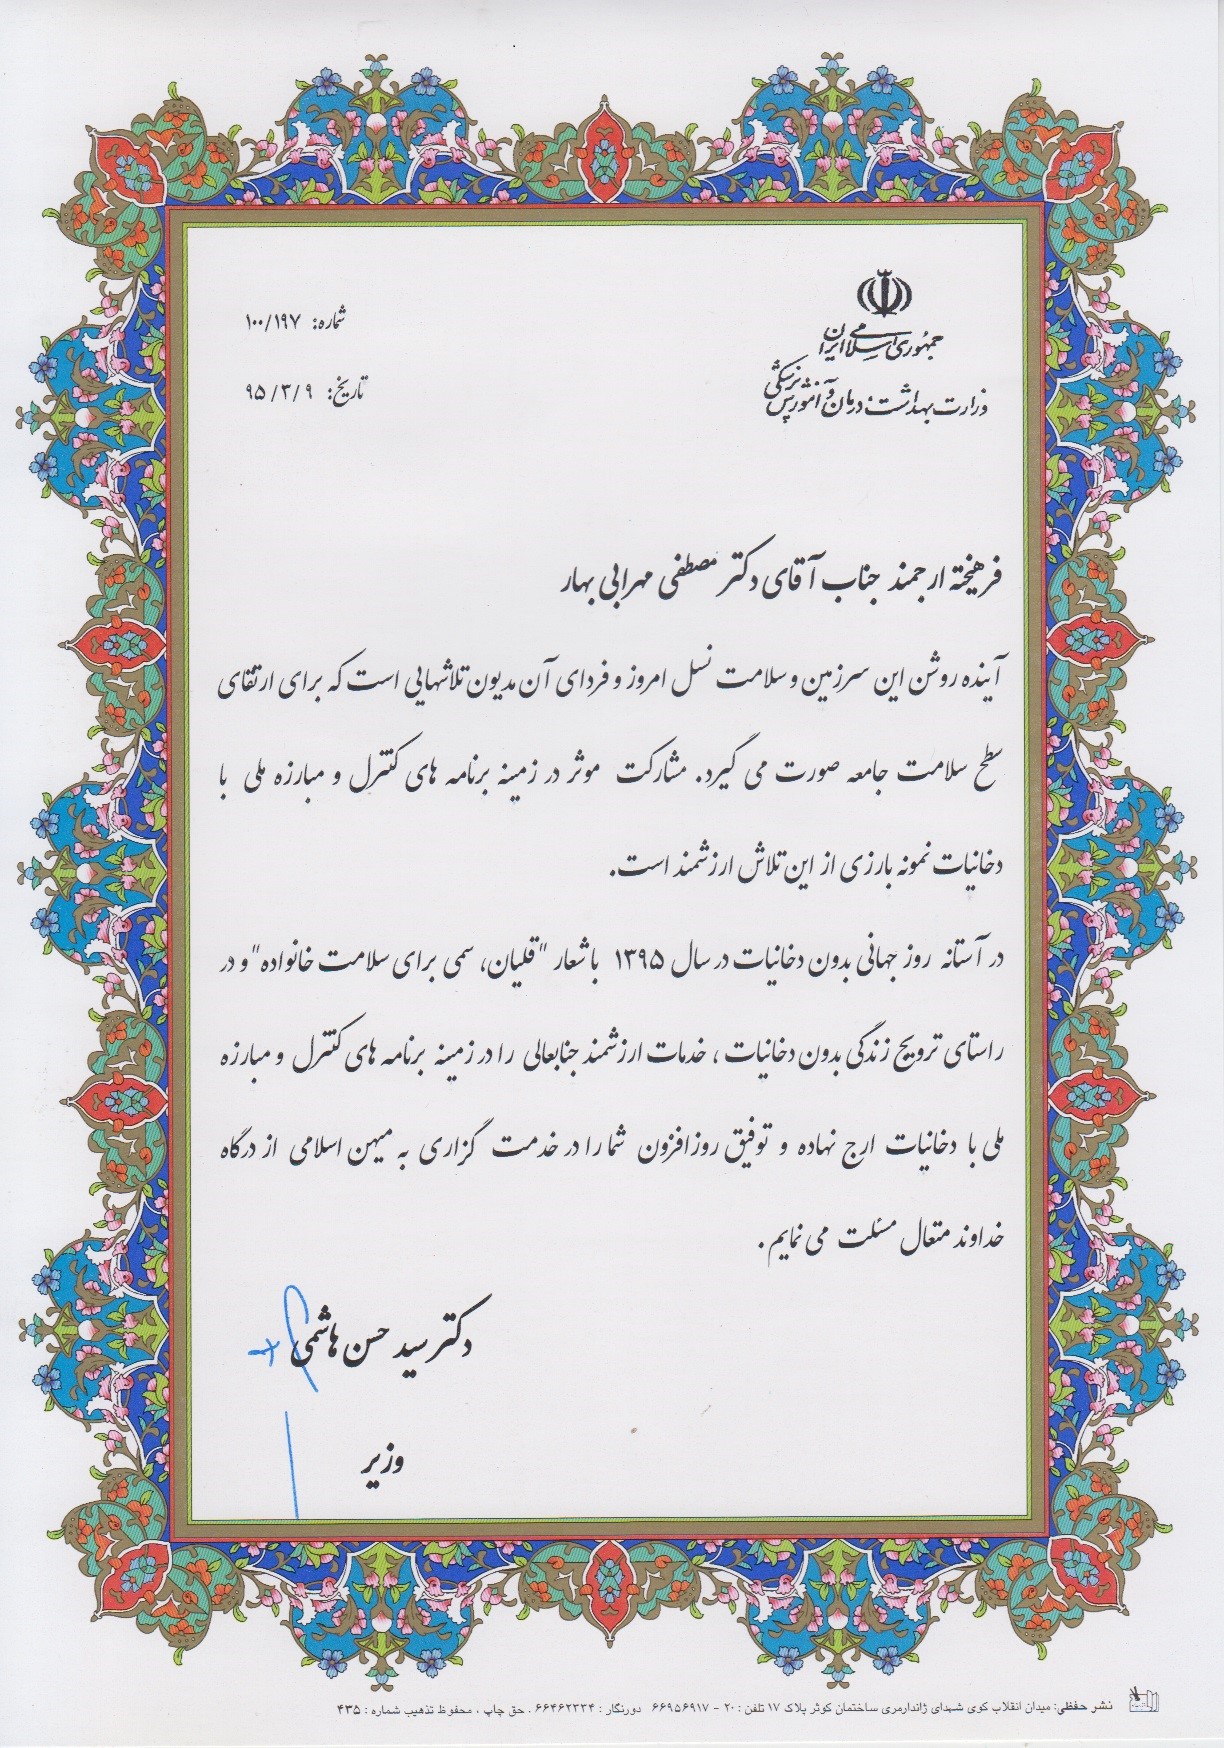 جمهوری اسلامی ایران
وزارت بهداشت، درمان و آموزش پزشکی
شماره: ۱۰۰/۱۹۷
تاریخ: ۹۵/۳/۹
فرهیخته ارجمند جناب آقای دکتر مصطفی مهرابی بهار
آینده روشن این سرزمین و سلامت نسل امروز و فردای آن مدیون تلاشهایی است که برای ارتقای
سطح سلامت جامعه صورت می گیرد. مشارکت موثر در زمینه برنامه های کنترل و مبارزه ملی با
دخانیات نمونه بارزی از این تلاش ارزشمند است.
در آستانه روز جهانی بدون دخانیات در سال ۱۳۹۵ با شعار "قلیان، سمی برای سلامت خانواده" و در
راستای ترویج زندگی بدون دخانیات ، خدمات ارزشمند جنابعالی را در زمینه برنامه های کنترل و مبارزه
ملی با دخانیات ارج نهاده و توفیق روزافزون شما را در خدمت گزاری به میهن اسلامی از درگاه
خداوند متعال مسئلت می نمایم.
دکتر سید حسن هاشمی
وزیر
نشر حفظی: میدان انقلاب کوی شهدای ژاندارمری ساختمان کوثر پلاک ۱۷ تلفن : ۲۰ - ۶۶۹۵۶۹۱۷ دورنگار : ۶۶۴۶۲۳۳۴ . حق چاپ ، محفوظ تذهیب شماره : ۴۳۵